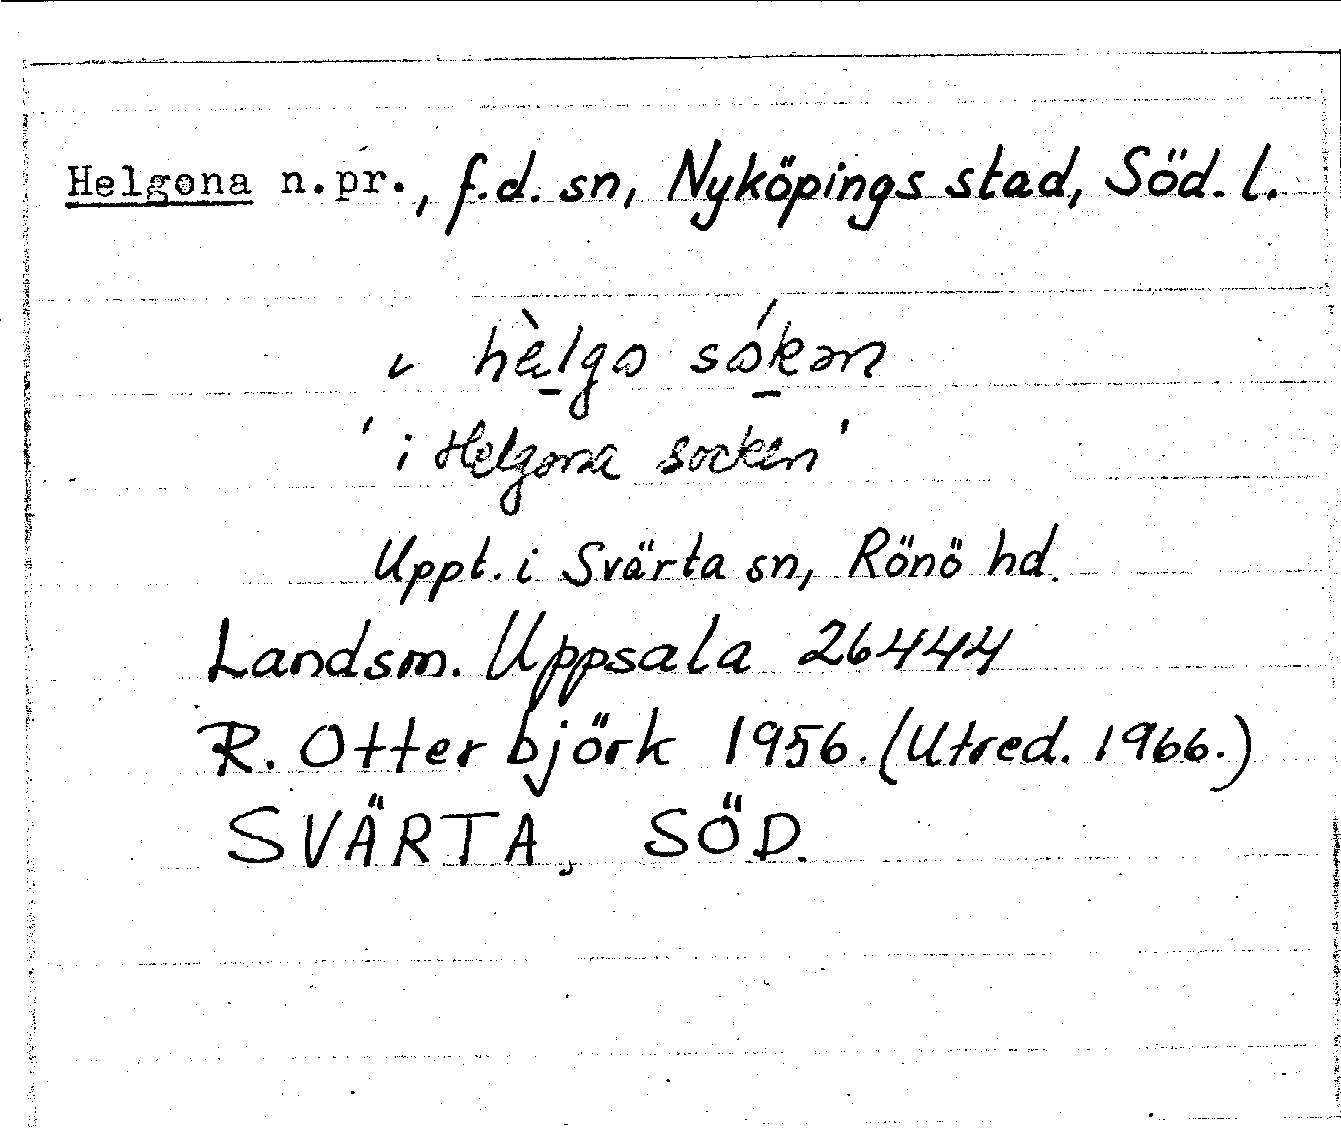 Helgona n.pr., f.d. sn, Nyköpings stad, Söd. l.
ɩ hæ̀lgɷ sɷ́kən
'i Helgona socken'
Uppt. i Svärta sn, Rönö hd.
Landsm. Uppsala 26444
R. Otterbjörk 1956. (Utred. 1966.)
SVÄRTA, SÖD.